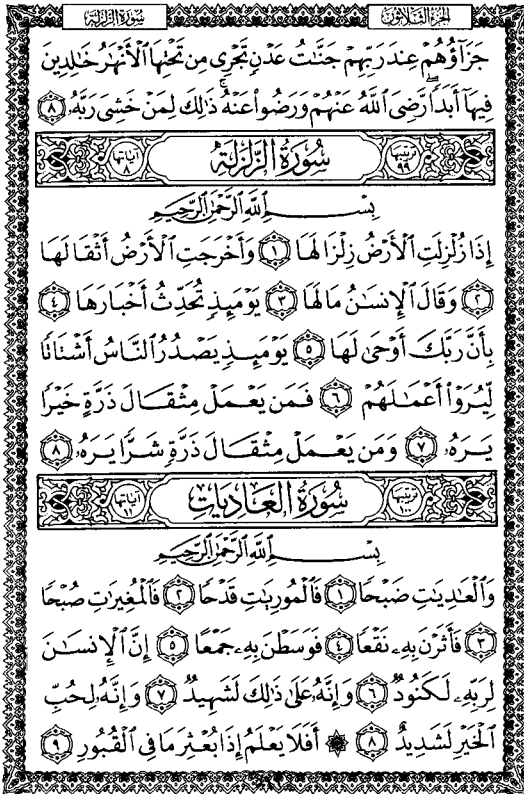 الجزء الثلاثون
سورة الزلزلة
جَزَآؤُهُمْ عِندَ رَبِّهِمْ جَنَّٰتُ عَدْنٍ تَجْرِى مِن تَحْتِهَا ٱلْأَنْهَٰرُ خَٰلِدِينَ
فِيهَآ أَبَدًا ۖ رَّضِىَ ٱللَّهُ عَنْهُمْ وَرَضُوا۟ عَنْهُ ۚ ذَٰلِكَ لِمَنْ خَشِىَ رَبَّهُۥ ٨
ترتيبها ٩٩ سُورَةُ الزَّلْزَلَةِ آياتها ٨
بِسْمِ ٱللَّهِ ٱلرَّحْمَٰنِ ٱلرَّحِيمِ
إِذَا زُلْزِلَتِ ٱلْأَرْضُ زِلْزَالَهَا ١ وَأَخْرَجَتِ ٱلْأَرْضُ أَثْقَالَهَا
٢ وَقَالَ ٱلْإِنسَٰنُ مَالَهَا ٣ يَوْمَئِذٍ تُحَدِّثُ أَخْبَارَهَا ٤
بِأَنَّ رَبَّكَ أَوْحَىٰ لَهَا ٥ يَوْمَئِذٍ يَصْدُرُ ٱلنَّاسُ أَشْتَاتًا
لِّيُرَوْا۟ أَعْمَٰلَهُمْ ٦ فَمَن يَعْمَلْ مِثْقَالَ ذَرَّةٍ خَيْرًا
يَرَهُۥ ٧ وَمَن يَعْمَلْ مِثْقَالَ ذَرَّةٍ شَرًّا يَرَهُۥ ٨
ترتيبها ١٠٠ سُورَةُ العَادِيَاتِ آياتها ١١
بِسْمِ ٱللَّهِ ٱلرَّحْمَٰنِ ٱلرَّحِيمِ
وَٱلْعَٰدِيَٰتِ ضَبْحًا ١ فَٱلْمُورِيَٰتِ قَدْحًا ٢ فَٱلْمُغِيرَٰتِ صُبْحًا
٣ فَأَثَرْنَ بِهِۦ نَقْعًا ٤ فَوَسَطْنَ بِهِۦ جَمْعًا ٥ إِنَّ ٱلْإِنسَٰنَ
لِرَبِّهِۦ لَكَنُودٌ ٦ وَإِنَّهُۥ عَلَىٰ ذَٰلِكَ لَشَهِيدٌ ٧ وَإِنَّهُۥ لِحُبِّ
ٱلْخَيْرِ لَشَدِيدٌ ٨ ۞ أَفَلَا يَعْلَمُ إِذَا بُعْثِرَ مَا فِى ٱلْقُبُورِ ٩